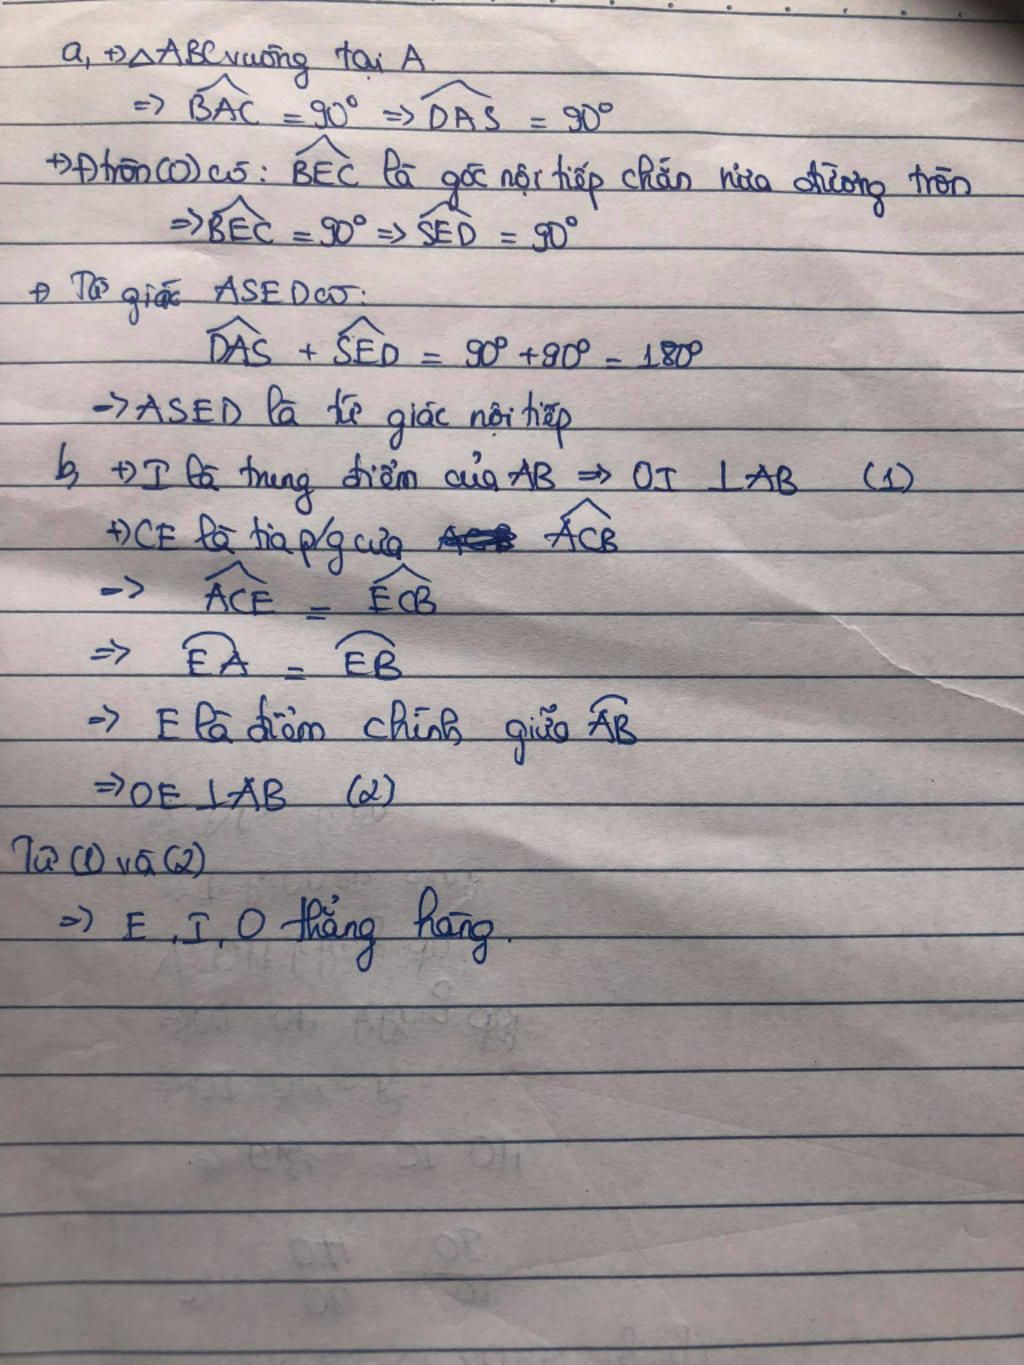 a, +) △ABC vuông tại A
=> BAC = 90° => DAS = 90°
+) Đ tròn (O) có: BEC là góc nội tiếp chắn nửa đường tròn
=> BEC = 90° => SED = 90°
+) Tứ giác ASED có:
DAS + SED = 90° + 90° = 180°
-> ASED là tứ giác nội tiếp
b, +) I là trung điểm của AB => OI ⊥ AB (1)
+) CE là tia p/g của ACB
-> ACE = ECB
=> EA = EB
=> E là điểm chính giữa AB
=> OE ⊥ AB (2)
Từ (1) và (2)
=> E, I, O thẳng hàng.